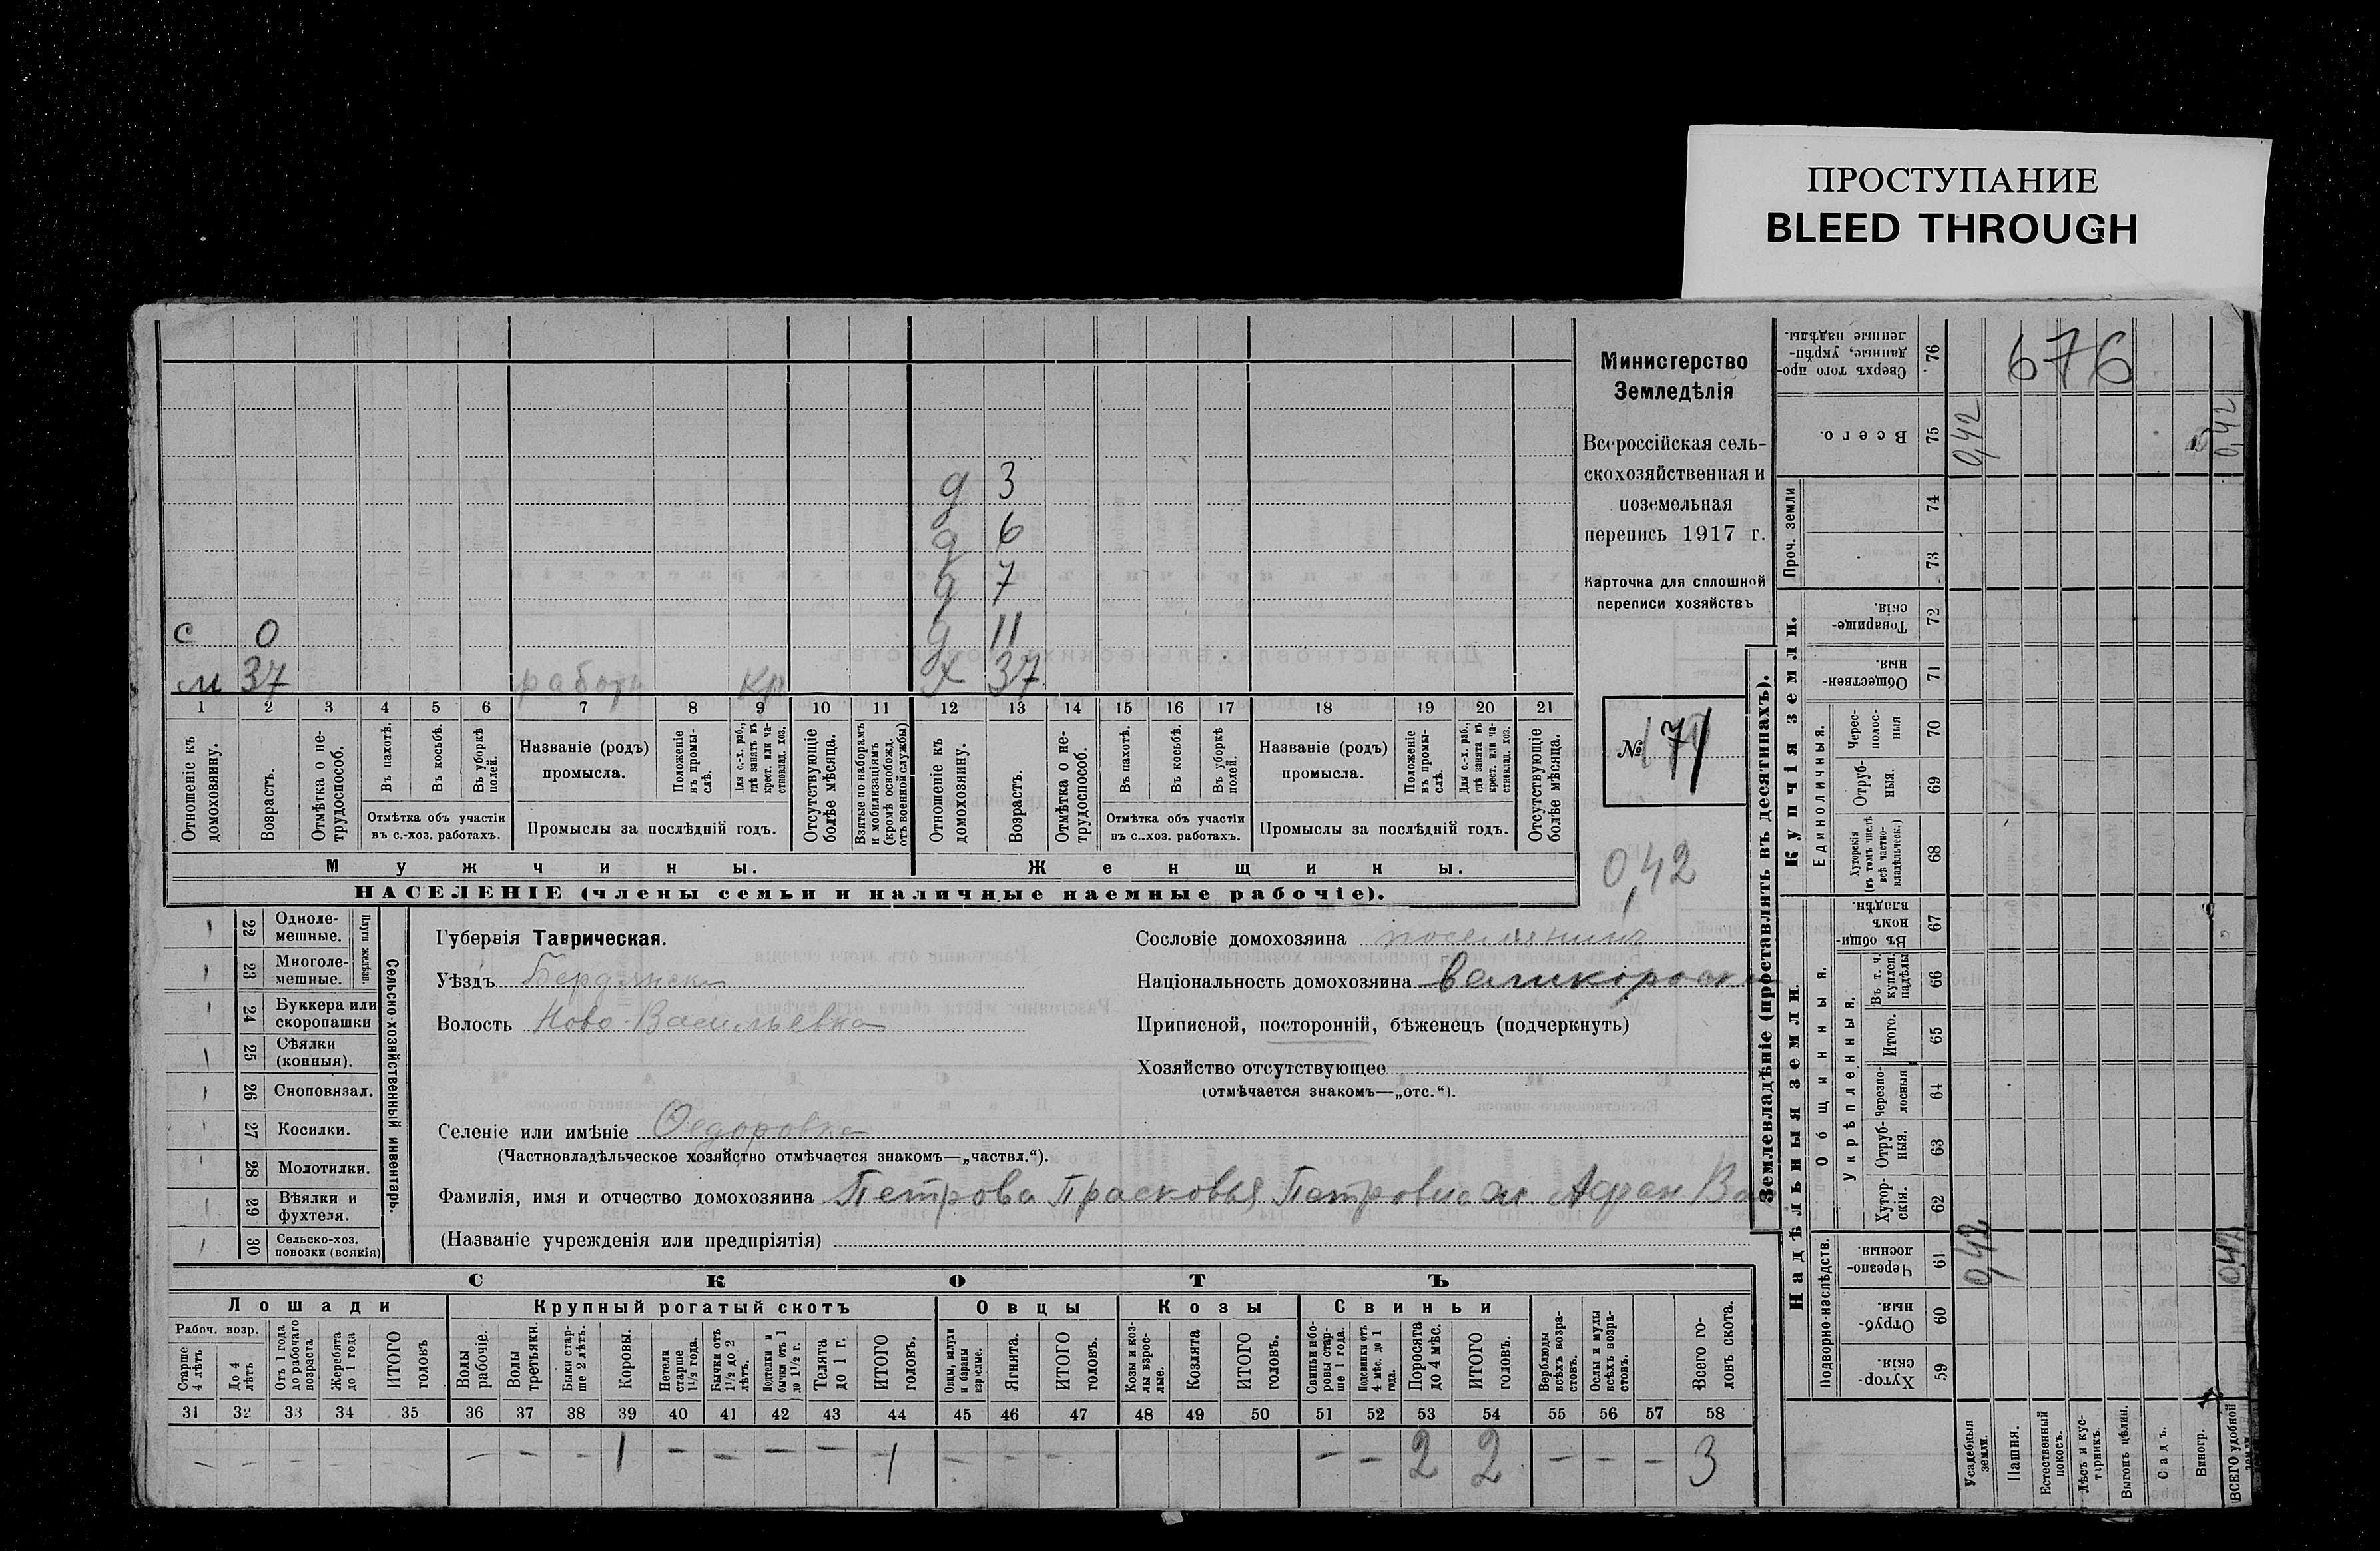 ПРОСТУПАНИЕ
BLEED THROUGH
Министерство
Земледѣлія
Всероссійская сель-
скохозяйственная и
поземельная
перепись 1917 г.
Карточка для сплошной
переписи хозяйствъ
№ 171
0,42
676
д 3
д 6
д 7
с 0 д 11
м 37 работн кр х 37
1 2 3 4 5 6 7 8 9 10 11 12 13 14 15 16 17 18 19 20 21
Отношеніе къ домохозяину.
Возрастъ.
Отмѣтка о не-трудоспособ.
Въ пахотѣ.
Въ косьбѣ.
Въ уборкѣ полей.
Отмѣтка объ участіи
въ с.-хоз. работахъ.
Названіе (родъ)
промысла.
Положеніе въ промы-слѣ.
Для с.-х. раб., гдѣ занятъ въ крест. или ча-стновлад. хоз.
Промыслы за послѣдній годъ.
Отсутствующіе болѣе мѣсяца.
Взятые по наборамъ и мобилизаціямъ (кромѣ освобожд. отъ военной службы)
Отношеніе къ домохозяину.
Возрастъ.
Отмѣтка о не-трудоспособ.
Въ пахотѣ.
Въ косьбѣ.
Въ уборкѣ полей.
Отмѣтка объ участіи
въ с.-хоз. работахъ.
Названіе (родъ)
промысла.
Положеніе въ промы-слѣ.
Для с.-х. раб., гдѣ занята въ крест. или ча-стновлад. хоз.
Промыслы за послѣдній годъ.
Отсутствующіе болѣе мѣсяца.
Мужчины. Женщины.
НАСЕЛЕНІЕ (члены семьи и наличные наемные рабочіе).
22 Одноле-мешные.
23 Многоле-мешные.
Плуги желѣзн.
24 Буккера или скоропашки
25 Сѣялки (конныя).
26 Сноповязал.
27 Косилки.
28 Молотилки.
29 Вѣялки и фухтеля.
30 Сельско-хоз. повозки (всякія)
Сельско-хозяйственный инвентарь.
Губернія Таврическая.
Уѣздъ Бердянски
Волость Ново-Васильевка
Сословіе домохозяина поселянинъ
Національность домохозяина великоросс
Приписной, посторонній, бѣженецъ (подчеркнуть)
Хозяйство отсутствующее
(отмѣчается знакомъ—„отс.“).
Селеніе или имѣніе Федоровка
(Частновладѣльческое хозяйство отмѣчается знакомъ—„частвл.“).
Фамилія, имя и отчество домохозяина Петрова Прасковья
(Названіе учрежденія или предпріятія)
СКОТЪ
Лошади Крупный рогатый скотъ Овцы Козы Свиньи
Рабоч. возр.
Старше 4 лѣтъ
До 4 лѣтъ
Отъ 1 года до рабочаго возраста
Жеребята до 1 года
ИТОГО головъ
Волы рабочіе.
Волы третьяки.
Быки стар-ше 2 лѣтъ.
Коровы.
Нетели старше 1 1/2 года.
Бычки отъ 1 1/2 до 2 лѣтъ.
Подтелки и бычки отъ 1 до 1 1/2 г.
Телята до 1 г.
ИТОГО головъ.
Овцы, валухи и бараны взрослые.
Ягнята.
ИТОГО головъ.
Козы и коз-лы взрос-лые.
Козлята
ИТОГО головъ.
Свиньи и бо-ровы стар-ше 1 года.
Подсвинки отъ 4 мѣс. до 1 года.
Поросята до 4 мѣс.
ИТОГО головъ.
Верблюды всѣхъ возра-стовъ.
Ослы и мулы всѣхъ возра-стовъ.
Всего го-ловъ скота.
31 32 33 34 35 36 37 38 39 40 41 42 43 44 45 46 47 48 49 50 51 52 53 54 55 56 57 58
– – – – – – – – 1 – – – – 1 – – – – – 2 2 – – – 3
Землевладѣніе (проставлять въ десятинахъ).
Купчія земли.
Надѣльныя земли
Сверхъ того про-данные, укрѣп-ленные надѣлы. 76
Всего. 75 0,42 0,42
Проч. земли 74 73
Товарище-скія. 72
Обществен-ныя. 71
Единоличныя.
Черес-полос-ныя 70
Отруб-ныя. 69
Хуторскія (въ томъ числѣ всѣ частно-владѣльческ.) 68
Общинныя.
Въ общи-номъ владѣн. 67
Укрѣпленныя.
Въ т. ч. куплен. надѣлы 66
Итого. 65
Черезпо-лосныя 64
Отруб-ныя. 63
Хутор-скія. 62
Подворно-наслѣдств.
Черезпо-лосныя 61 0,42 0,42
Отруб-ныя. 60
Хутор-скія 59
Усадебныя земли.
Пашня.
Естественный покосъ.
Лѣсъ и кус-тарникъ.
Выгонъ цѣлин.
Садъ.
Виногр.
ВСЕГО удобной земли